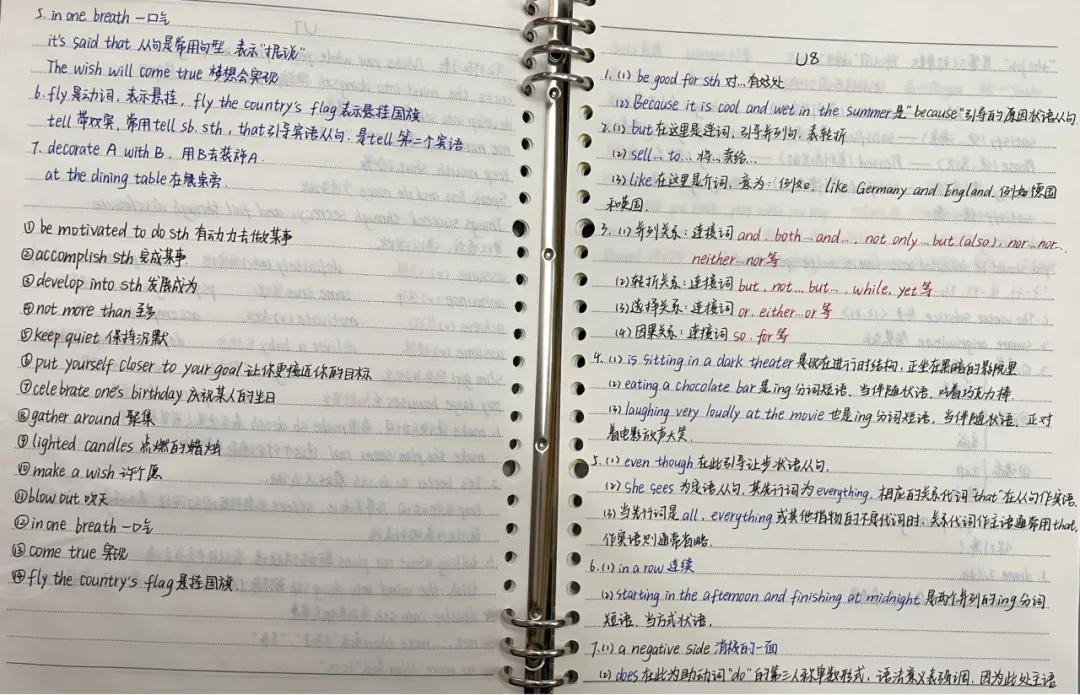 5. in one breath 一口气
it's said that 从句是常用句型,表示"据说"
The wish will come true 梦想会实现
6. fly 是动词,表示悬挂,fly the country's flag 表示悬挂国旗
tell 带双宾,常用tell sb. sth,that引导宾语从句,是tell第二个宾语
7. decorate A with B. 用B去装饰A.
at the dining table 在餐桌旁.
① be motivated to do sth 有动力去做某事
② accomplish sth 完成某事
③ develop into sth 发展成为
④ not more than 至多
⑤ keep quiet 保持沉默
⑥ put yourself closer to your goal 让你更接近你的目标
⑦ celebrate one's birthday 庆祝某人的生日
⑧ gather around 聚集
⑨ lighted candles 点燃的蜡烛
⑩ make a wish 许个愿
⑪ blow out 吹灭
⑫ in one breath 一口气
⑬ come true 实现
⑭ fly the country's flag 悬挂国旗.
U8
1. (1) be good for sth 对...有好处
(2) Because it is cool and wet in the summer 是"because"引导的原因状语从句
2. (1) but在这里是连词,引导并列句,表转折
(2) sell...to... 将...卖给...
(3) like在这里是介词,意为:例如. like Germany and England. 例如德国
和英国.
3. (1) 并列关系:连接词 and. both...and..., not only...but (also), nor...nor..
neither...nor等
(2) 转折关系:连接词 but, not...but..., while, yet等
(3) 选择关系:连接词 or. either...or等
(4) 因果关系:连接词 so. for等
4. (1) is sitting in a dark theater 是现在进行时结构,正坐在黑暗的影院里
(2) eating a chocolate bar是ing分词短语,当伴随状语,吃着巧克力棒.
(3) laughing very loudly at the movie 也是ing分词短语,当伴随状语,正对
着电影放声大笑.
5. (1) even though在此引导让步状语从句.
(2) she sees 为定语从句,其先行词为everything, 相应的关系代词"that"在从句作宾语.
(3) 当先行词是all, everything或其他指物的不定代词时,关系代词作主语通常用that,
作宾语则通常省略.
6. (1) in a row 连续
(2) starting in the afternoon and finishing at midnight 是两个并列的ing分词
短语,当方式状语.
7. (1) a negative side 消极的一面
(2) does在此为助动词"do"的第三人称单数形式,语法意义表强调,因为此处主语